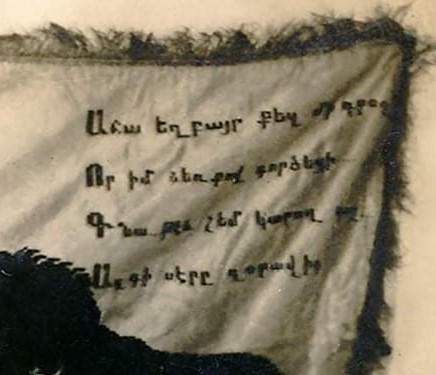 Ահա եղբայր քեզ մի դրօշ
Որ իմ ձեռքով գործեցի
Գնա չեմ կարող
Ազգի սէրը զօրավիգ